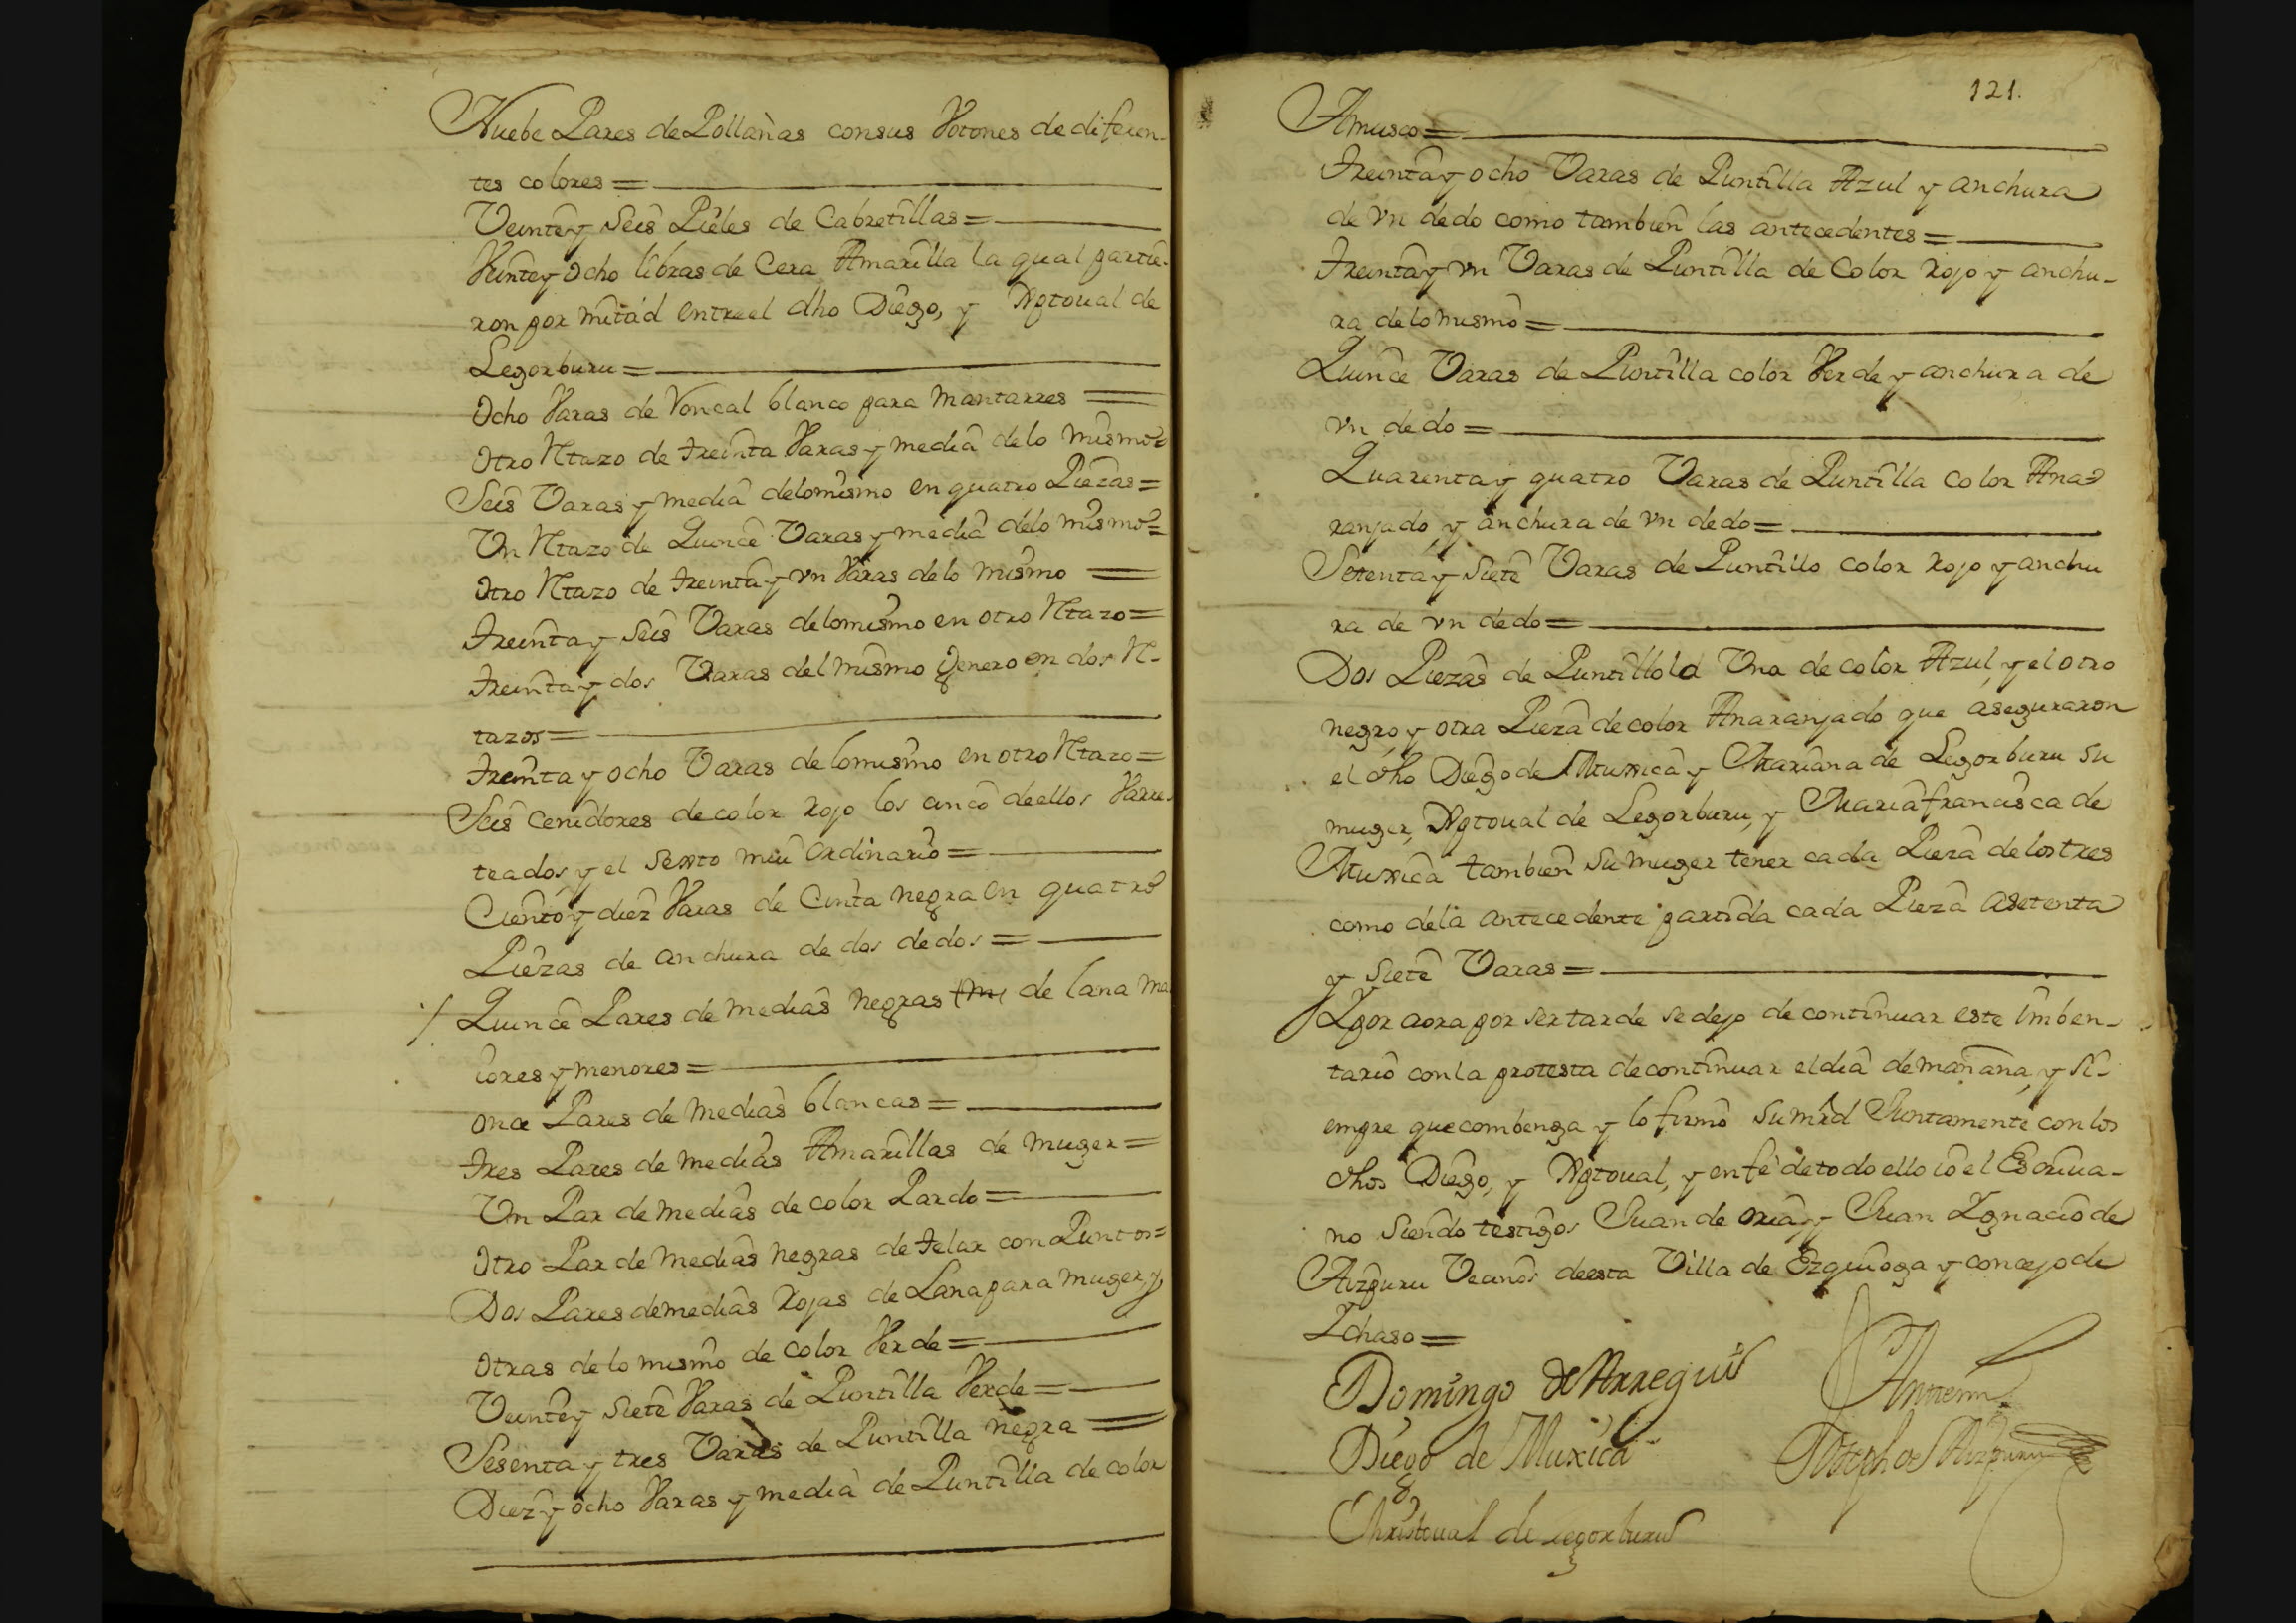 Nuebe Pares de Pollañas consus Votones de diferen-
tes colores =
Veintey Seis Pieles de Cabretillas =
Veintey Ocho libras de Cera Amarilla la qual partie-
ron por mitad entreel dho Diego, y Xptoual de
Legorburu =
Ocho Varas de Voncal blanco para Mantarres =
Otro Rtazo de treinta Varas y media de lo mismo =
Seis Varas y media delomismo en quatro Piezas =
Un Rtazo de Quince Varas y media delo mismo =
Otro Rtazo de treinta y vn Varas delo mismo =
Treinta y Seis Varas delomismo en otro Rtazo =
Treinta y dos Varas del mismo genero en dos R-
tazos =
Treinta y ocho Varas de lomismo en otro Rtazo =
Seis Cenidores de color Rojo los cinco deellos Varre-
teados y el Sexto mui ordinario =
Ciento y diez Varas de Cinta negra en quatro
Piezas de anchura de dos dedos =
Quince Pares de medias negras de lana ma
iores y menores =
Once Pares de medias blancas =
tres Pares de medias Amarillas de muger =
Un Par de medias de color Pardo =
Otro Par de medias negras de telar con Puntos =
Dos Pares demedias Rojas de Lana para muger, y
Otras de lo mismo de color Verde =
Veintey Siete Varas de Puntilla Verde =
Sesenta y tres Varas de Puntilla negra =
Diez y ocho Varas y media de Puntilla de color
121.
Amusco =
Treinta y ocho Varas de Puntilla Azul y anchura
de vn dedo como tambien las antecedentes =
Treinta y vn Varas de Puntilla de Color Rojo y anchu-
ra delo mismo =
Quince Varas de Puntilla color Verde y anchura de
vn dedo =
Quarenta y quatro Varas de Puntilla color Ana-
ranjado, y anchura de vn dedo =
Setenta y Siete Varas de Puntillo color Rojo y anchu
ra de vn dedo =
Dos Piezas de Puntillo la Una de color Azul, y el otro
negro y otra Pieza de color Anaranjado que aseguraron
el dho Diego de Muxica y Mariana de Legorburu su
muger, Xptoual de Legorburu, y Maria francisca de
Muxica tambien su muger tener cada Pieza de los tres
como dela antecedente partida cada Pieza asetenta
y Siete Varas =
Ypor aora por ser tarde se dejo de continuar este imben-
tario con la protesta de continuar el dia de mañana, y Si-
empre que combenga y lo firmò Su mrd Juntamente con los
dhos Diego, y Xptoual, y en fè de todo ello io el Escriua-
no Siendo testigos Juan de Oria y Juan Ygnacio de
Aizpuru Vecinos deesta Villa de Ezquioga y concejo de
Ychaso =
Domingo de Arregui
Antemi
Diego de Muxica
Joseph de Aizpuru
Christoual de Legorburu